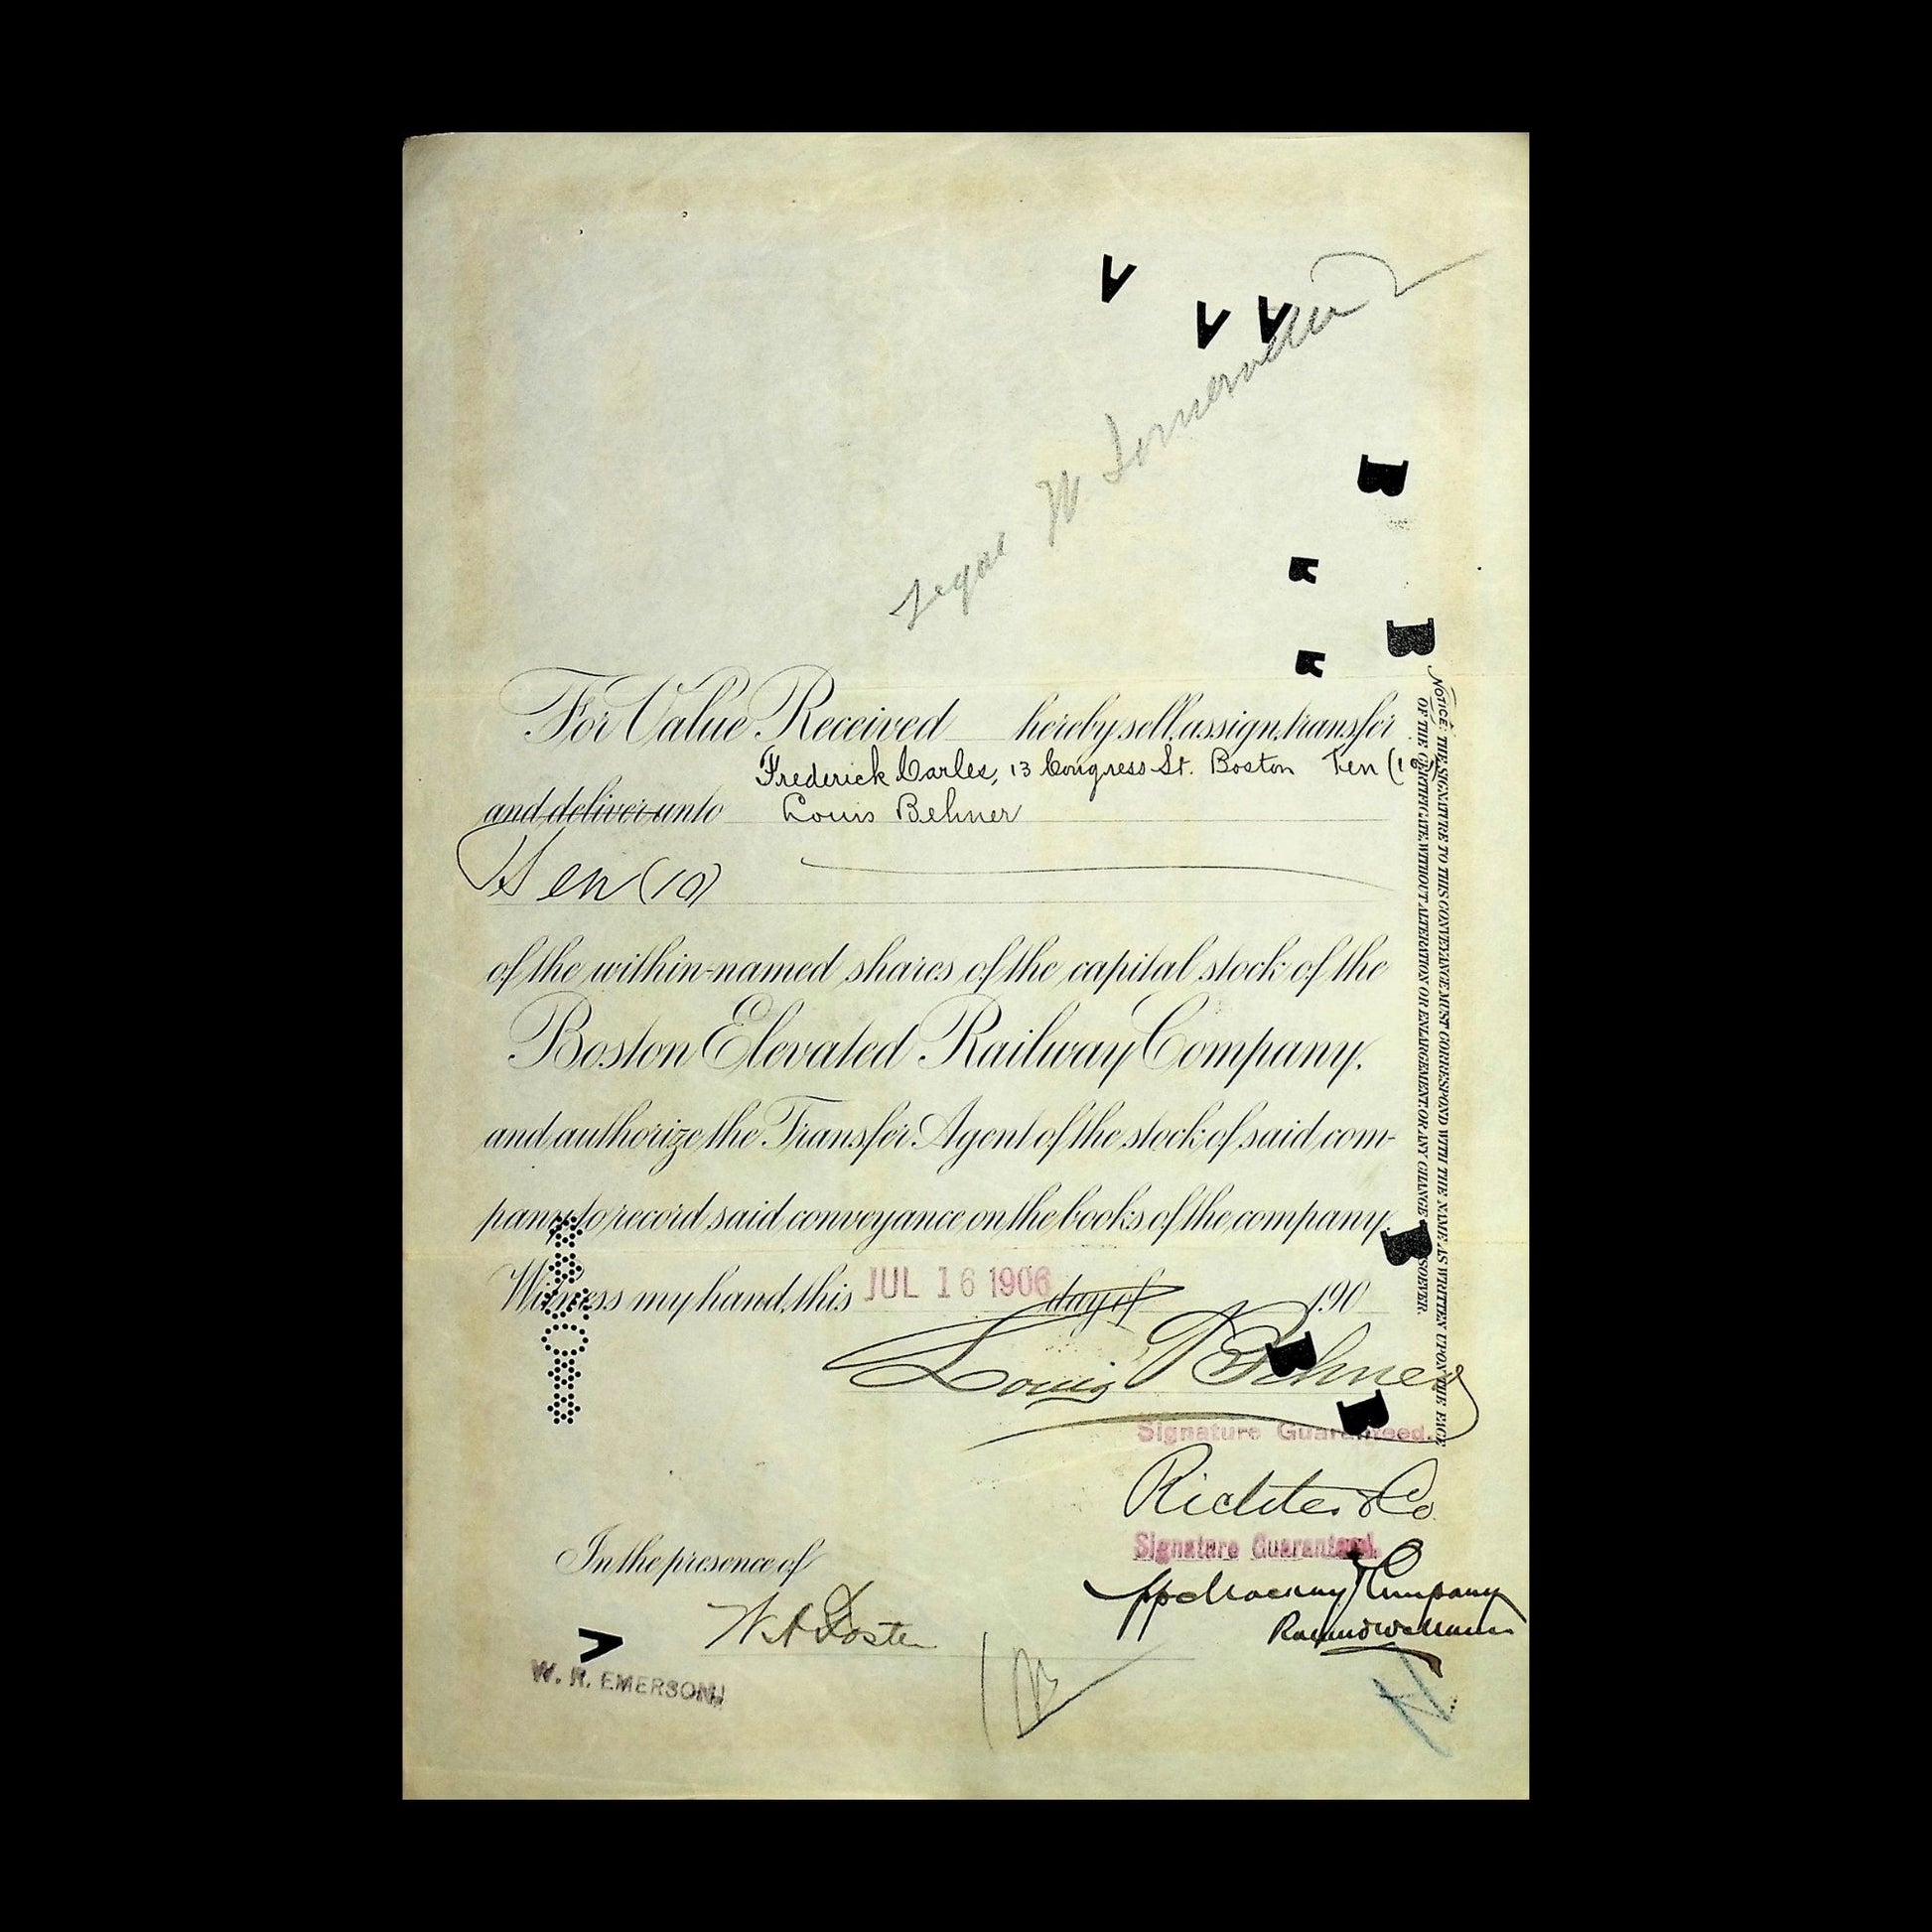 For Value Received hereby sell, assign, transfer
Frederick Carles, 13 Congress St. Boston Ten (10)
and deliver unto Louis Behner
Ten (10)
of the within-named shares of the capital stock of the
Boston Elevated Railway Company,
and authorize the Transfer Agent of the stock of said com-
pany to record said conveyance on the books of the company.
Witness my hand, this JUL 16 1906 day of 190
Louis Behner
Signature Guaranteed.
Richter & Co.
Signature Guaranteed.
Company
In the presence of
W. A. Foster
W. R. EMERSON,
NOTICE: THE SIGNATURE TO THIS CONVEYANCE MUST CORRESPOND WITH THE NAME AS WRITTEN UPON THE FACE
OF THE CERTIFICATE, WITHOUT ALTERATION OR ENLARGEMENT, OR ANY CHANGE WHATSOEVER.